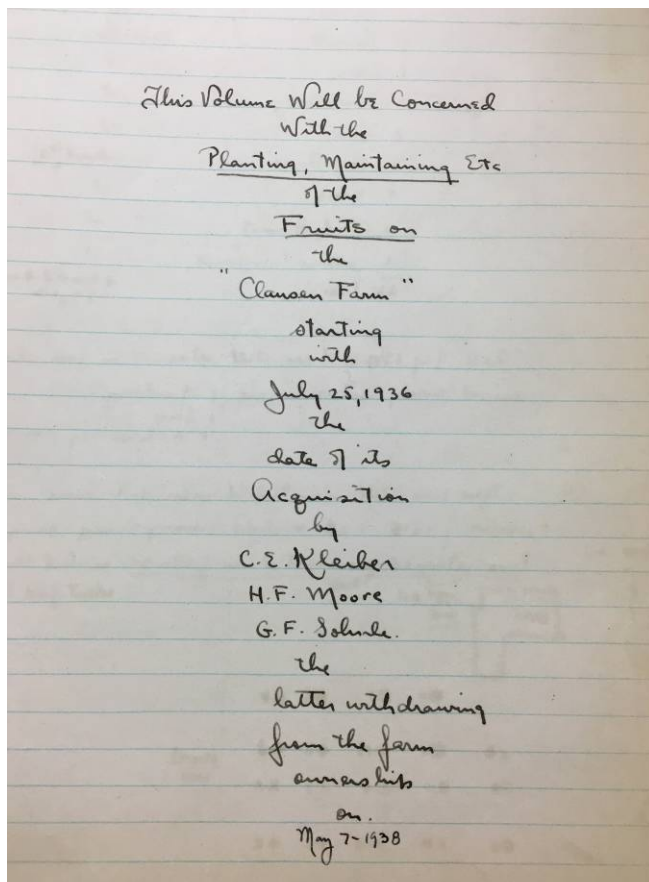 This Volume Will be Concerned
With the
Planting, Maintaining Etc
of the
Fruits on
the
"Clausen Farm"
starting
with
July 25, 1936
the
date of its
Acquisition
by
C.E. Kleiber
H.F. Moore
G.F.
the
latter withdrawing
from the farm
ownership
on.
May 7-1938